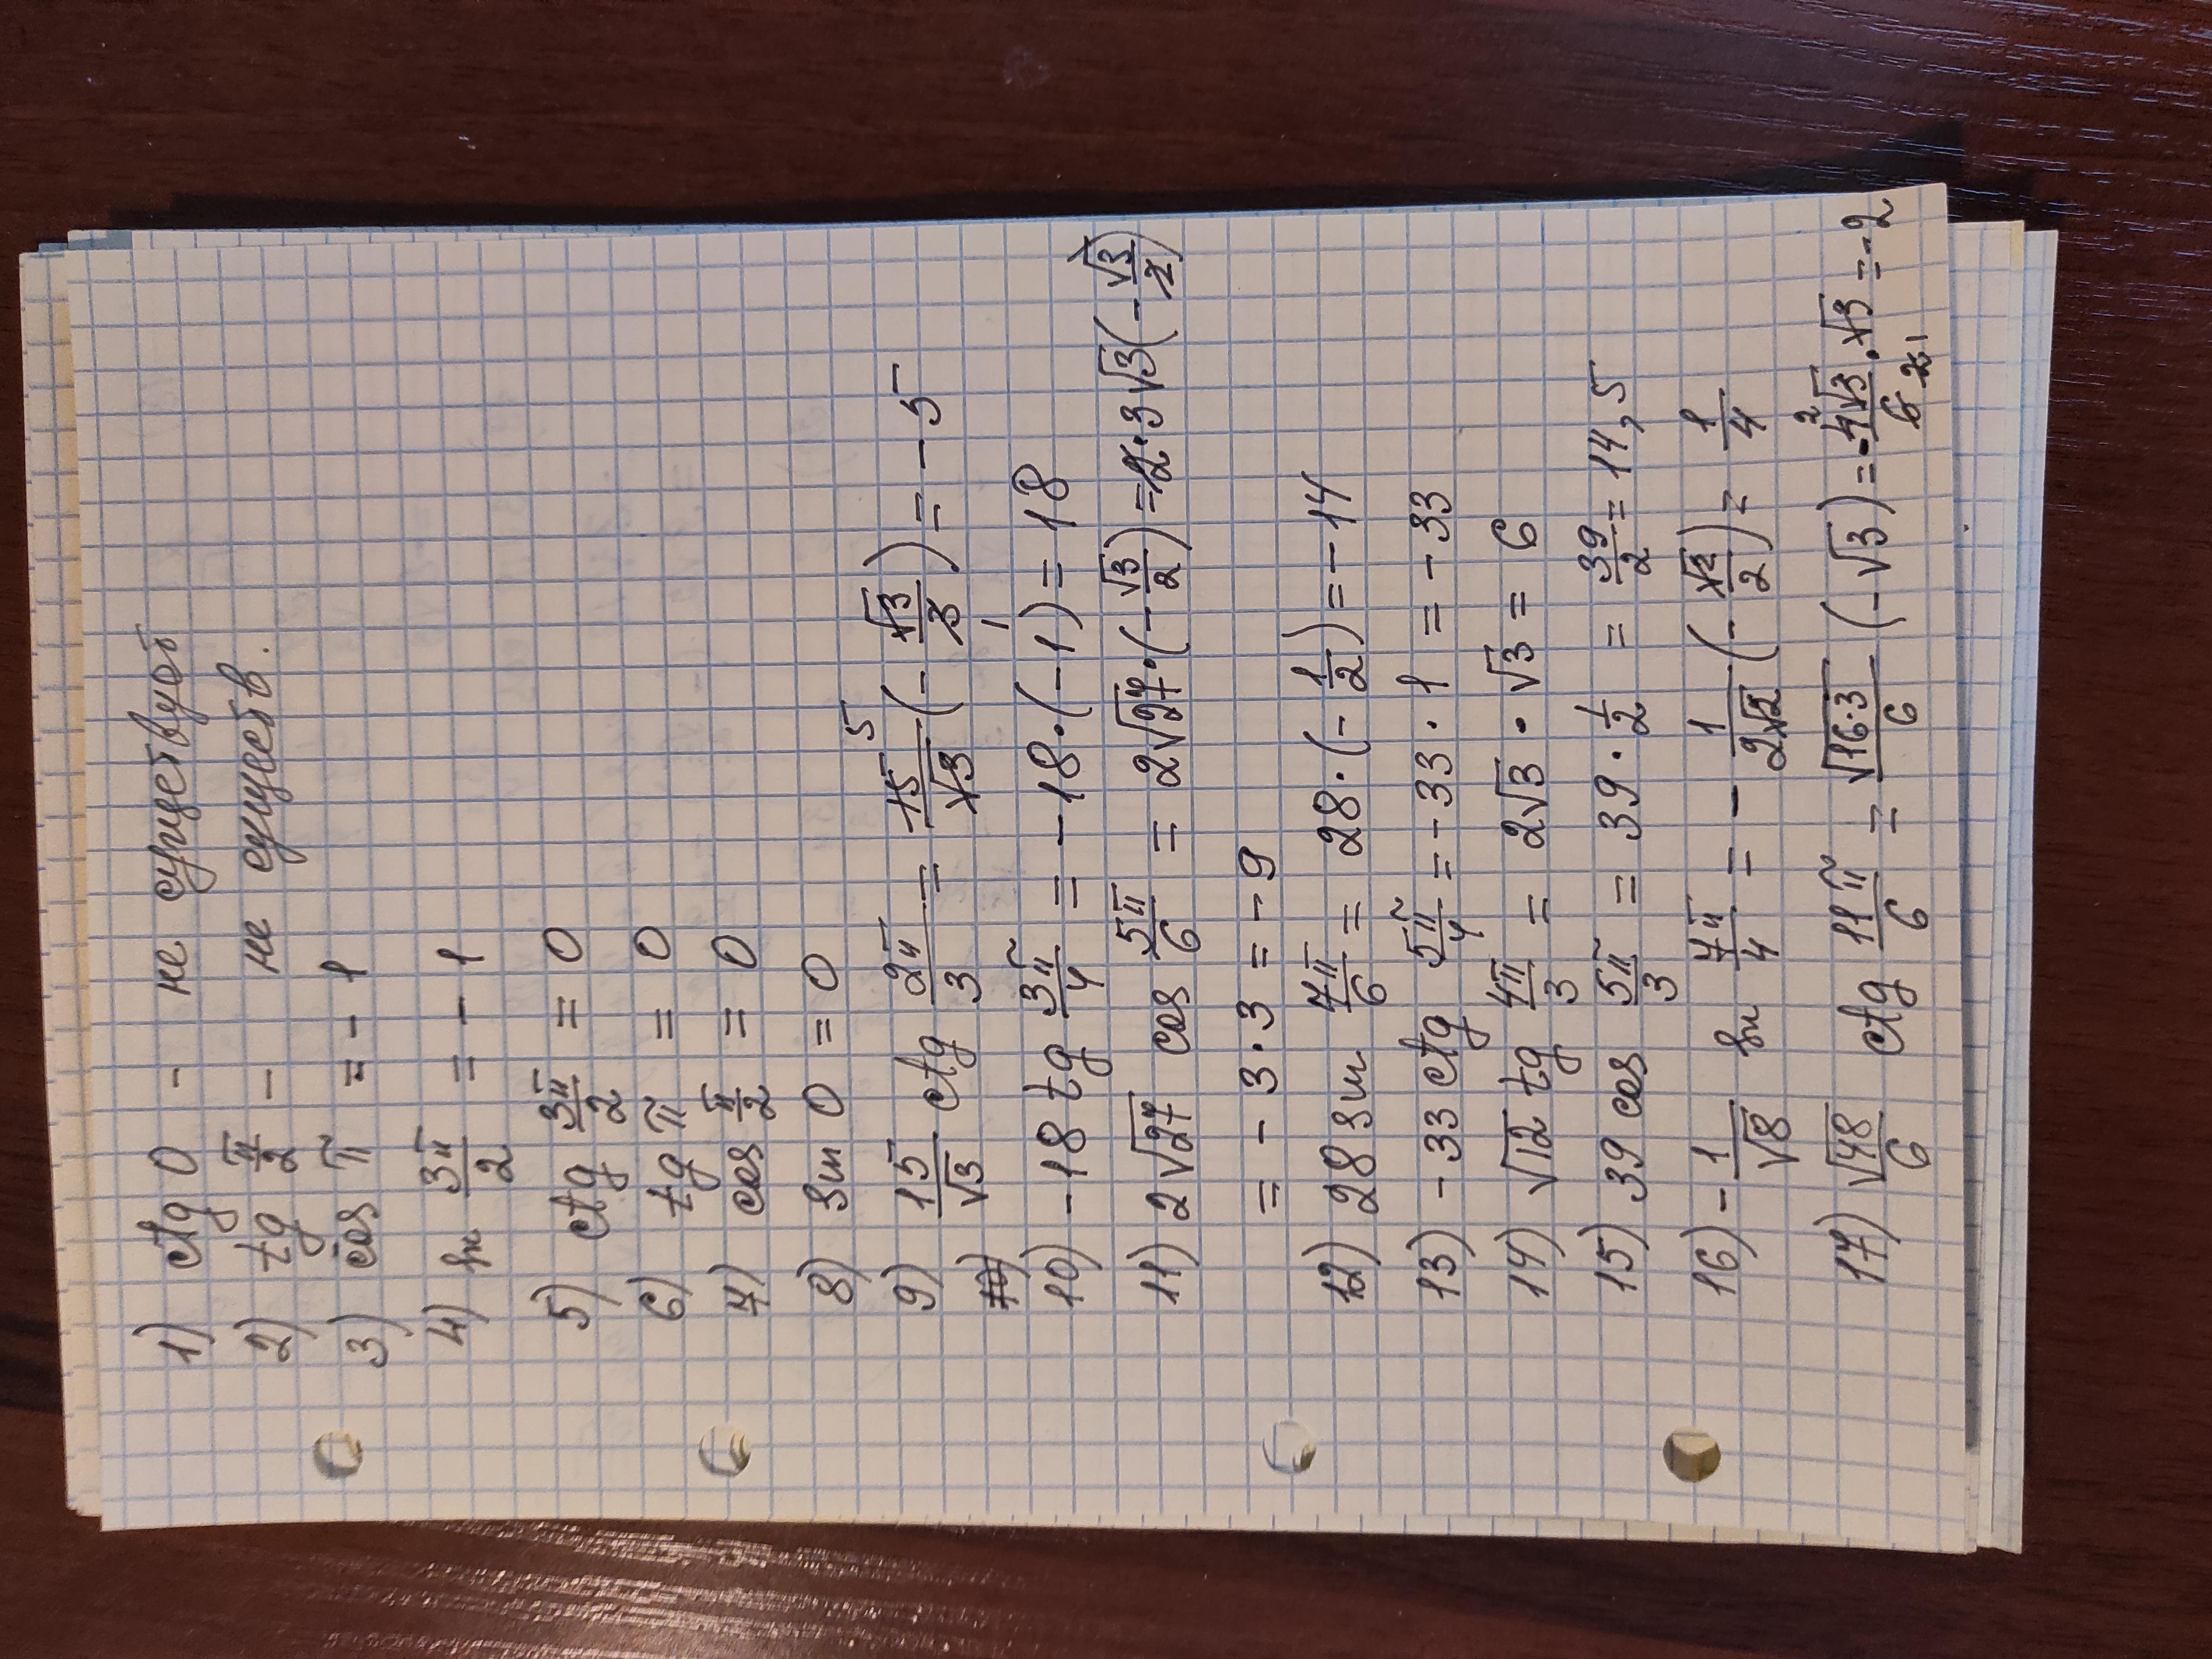 1) ctg 0 - не существует
2) tg π/2 - не существ.
3) cos π = - 1
4) sin 3π/2 = - 1
5) ctg 3π/2 = 0
6) tg π = 0
7) cos π/2 = 0
8) sin 0 = 0
9) 15/√3 ctg 2π/3 = 15 5/√3 (- √3/3 1) = - 5
10) -18 tg 3π/4 = -18·(-1) = 18
11) 2√27 cos 5π/6 = 2√27·(-√3/2) = 2·3√3(-√3/2)
= - 3·3 = - 9
12) 28 sin 7π/6 = 28·(-1/2) = -14
13) -33 ctg 5π/4 = -33·1 = -33
14) √12 tg 4π/3 = 2√3·√3 = 6
15) 39 cos 5π/3 = 39·1/2 = 39/2 = 14,5
16) - 1/√8 sin 7π/4 = - 1/2√2 (-√2/2) = 1/4
17) √48/6 ctg 11π/6 = √16·3/6 (-√3) = -4 2√3·√3/6 2 1 = -2